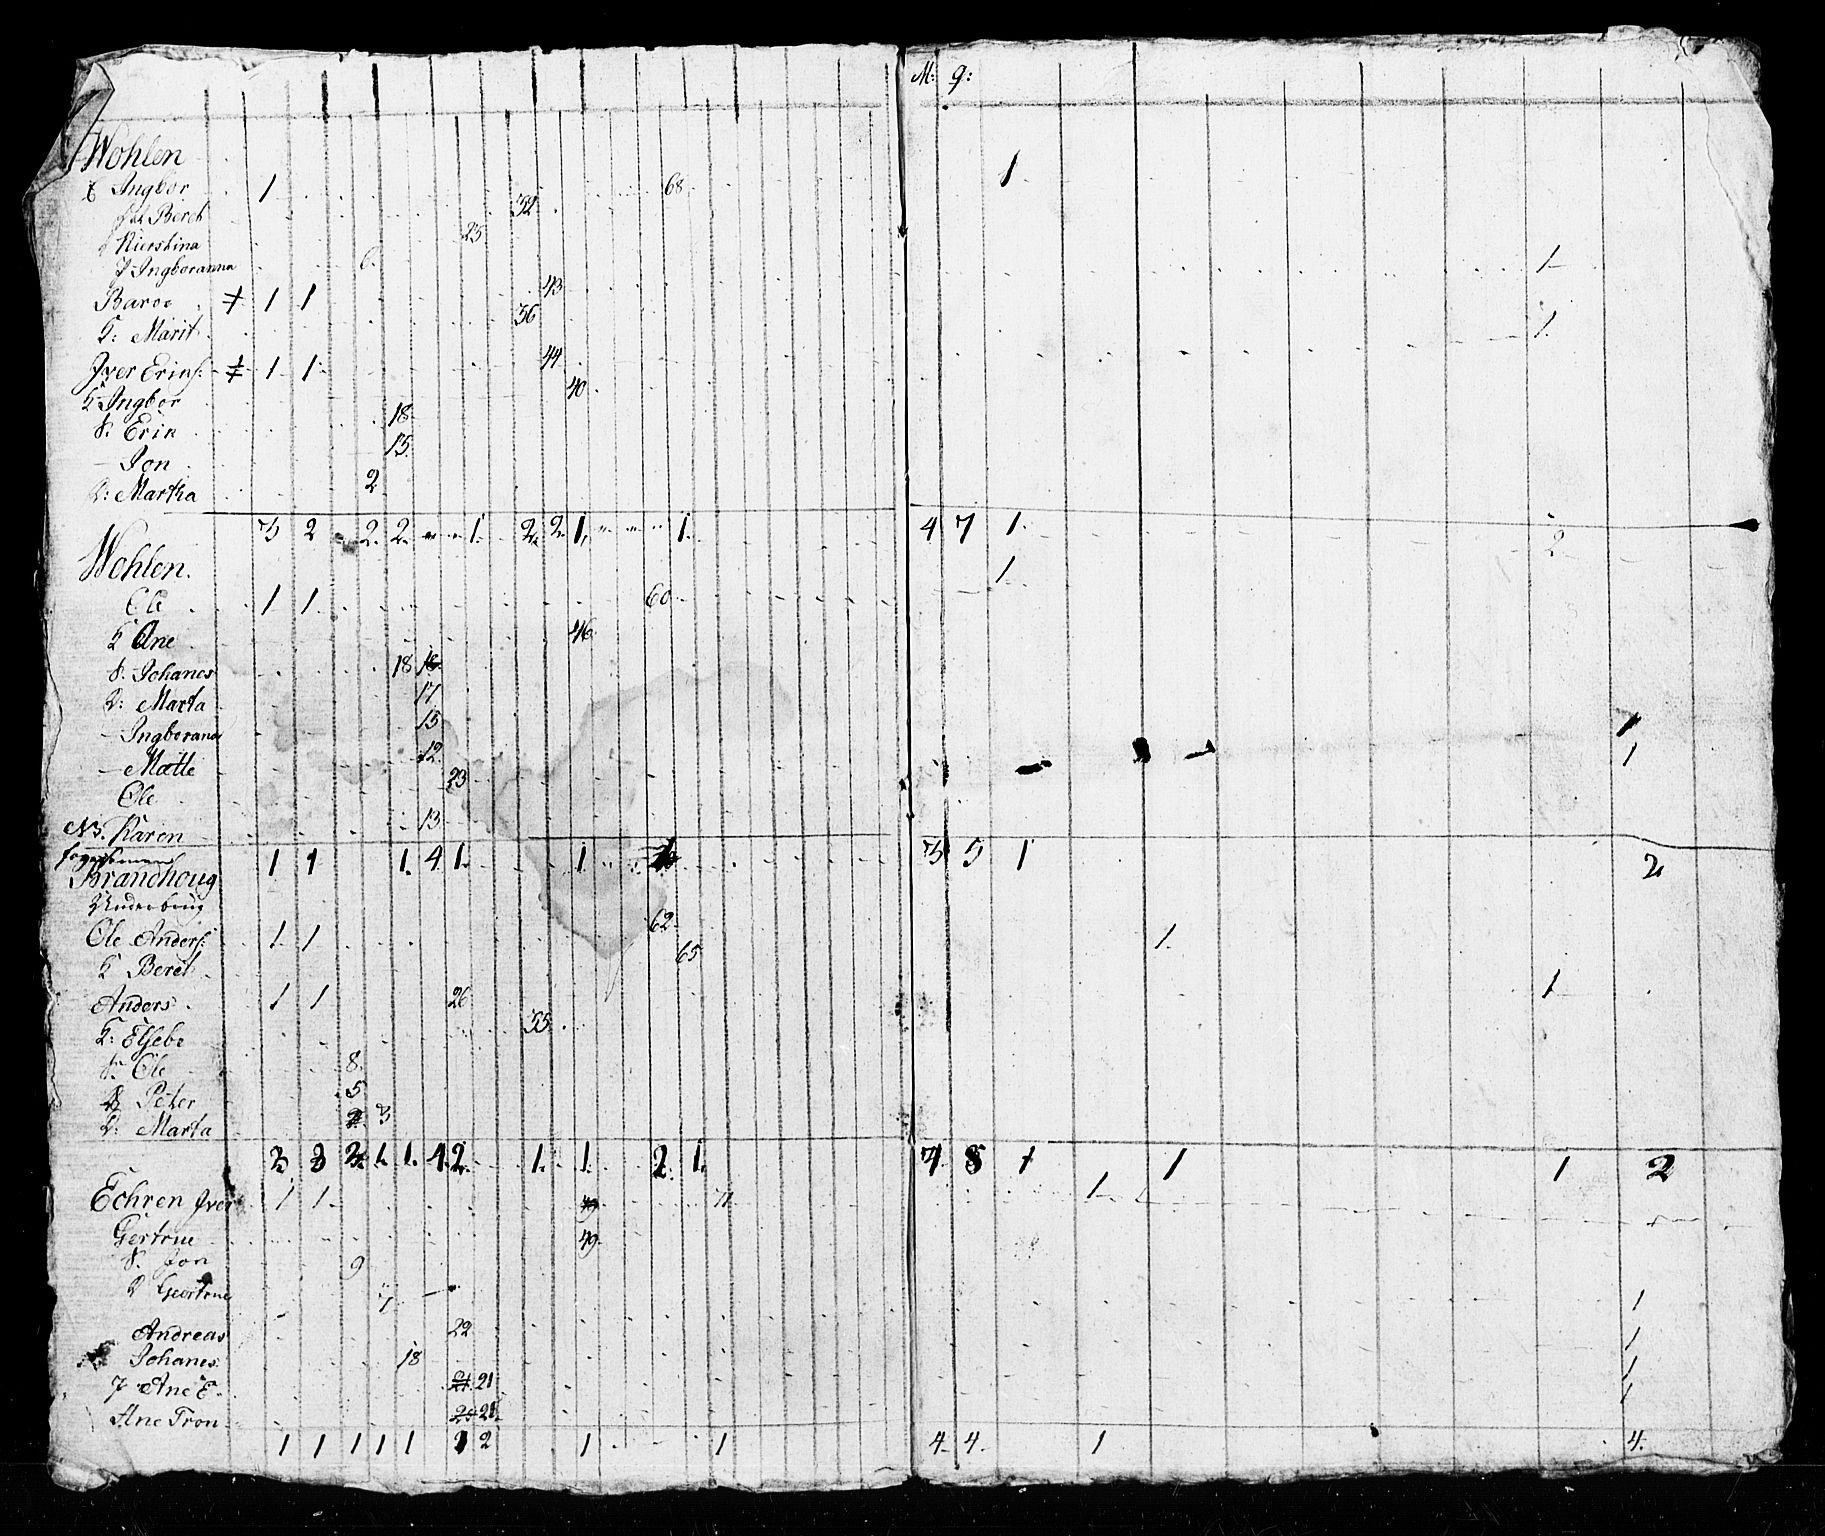 M: q:
Wohlen
E Ingbor 1 68 1
Beret 32
Kierstina 25
J Ingboranna 6 1
Baroe ≠ 1 1 43
K: Marit 36 1
Iver Erics: ≠ 1 1 44
K Ingbor 40
S. Erik 18
— Jon 15
D: Martha 2
3 2 2 2 1 2 2 1 1 4 7 1 2
Wohlen. 1
Ole 1 1 60
K Ane 46
S. Johanes 18 18
D: Marta 17
— Ingborana 15 1
— Mætte 12 1
Ole 23
NB. Karen 13
1 1 1 4 1 1 1 3 5 1 2
Brandhoug
Ole Anders: 1 1 62 1
K Beret 65
Anders 1 1 26 1
K: Elsebe 33
S. Ole 8
S Peter 5
D: Marta 2 3
2 2 2 1 1 4 2 1 1 2 1 4 8 1 1 1 2
Echren Iver 1 1 49 71 1
Gertrue 49
S. Jon 9
D Geertrue 7 1
Andreas 22 1
Johanes 18 1
J Ane E 21 21 1
Ane Tron 21
1 1 1 1 1 1 2 1 1 4 4 1 4